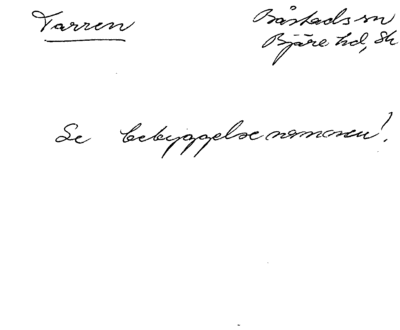 Tarren
Båstads sn
Bjäre hd, Sk
Se bebyggelsenamnen!